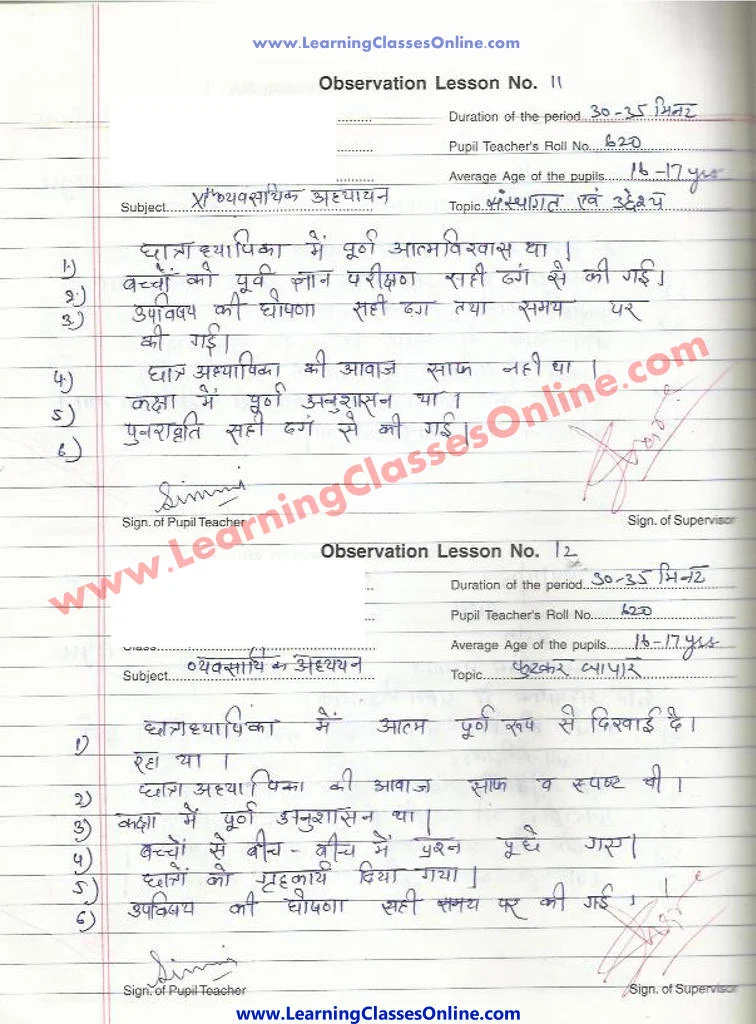 www.LearningClassesOnline.com
Observation Lesson No. 11
Duration of the period 30-35 मिनट
Pupil Teacher's Roll No. 620
Average Age of the pupils 16-17 yrs
Subject XIth व्यवसायिक अध्यायन Topic संस्थागत एवं उद्देश्य
1.) छात्राध्यापिका में पूर्ण आत्मविश्वास था ।
2.) बच्चों को पूर्व ज्ञान परीक्षण सही ढगं से की गई।
3.) उपविषय की घोषणा सही ढग तथा समय पर
की गई।
4.) छात्र अध्यापिका की आवाज साफ नही था ।
5) कक्षा में पूर्ण अनुशासन था ।
6.) पुनरावृति सही ढगं से की गई।
Simmi
Sign. of Pupil Teacher Sign. of Supervisor
www.LearningClassesOnline.com
Observation Lesson No. 12
Duration of the period 30-35 मिनट
Pupil Teacher's Roll No. 620
Average Age of the pupils 16-17 yrs
Subject व्यवसायिक अध्ययन Topic फुटकर व्यापार
1) छात्राध्यापिका में आत्म पूर्ण रूप से दिखाई दे।
रहा था ।
2) छात्रा अध्यापिका की आवाज साफ व स्पष्ट थी ।
3) कक्षा में पूर्ण अनुशासन था।
4) बच्चों से बीच - बीच में प्रश्न पूछे गए।
5) छात्रों को गृहकार्य दिया गया।
6) उपविषय की घोषणा सही समय पर की गई ।
Simmi
Sign. of Pupil Teacher Sign. of Supervisor
www.LearningClassesOnline.com